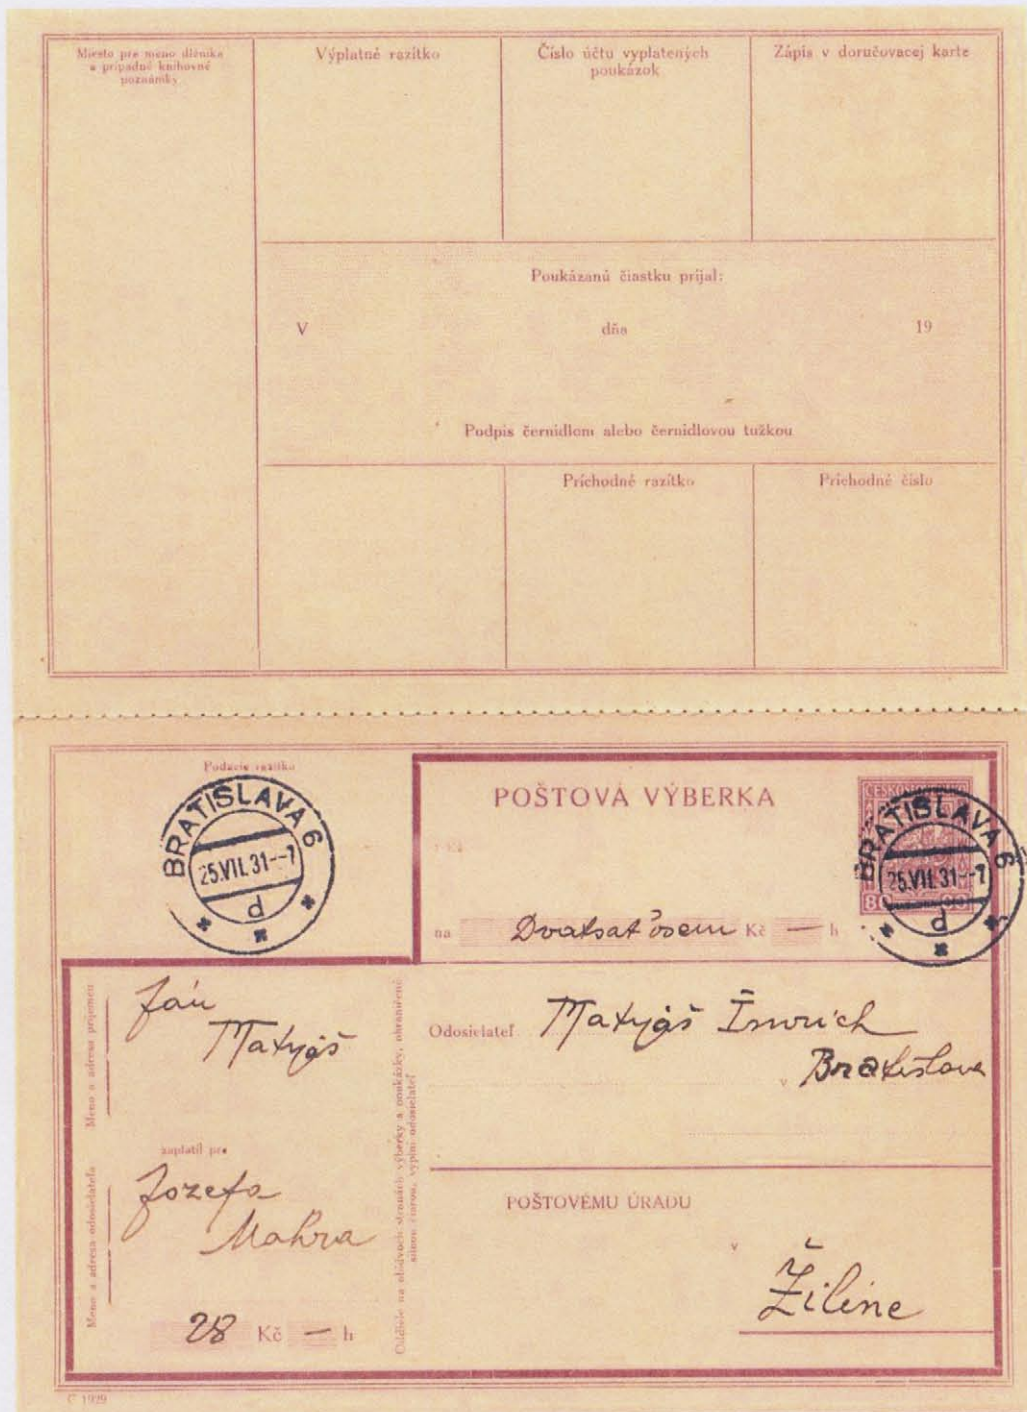 Miesto pre meno dlžníka
a prípadné knihovné
poznámky
Výplatné razítko
Číslo účtu vyplatených
poukázok
Zápis v doručovacej karte
Poukázanú čiastku prijal:
V dňa 19
Podpis černidlom alebo černidlovou tužkou
Príchodné razítko
Príchodné číslo
Podacie razítko
BRATISLAVA 6
25.VII.31--7
d
POŠTOVÁ VÝBERKA
80 80
BRATISLAVA 6
25.VII.31--7
d
na Dvatsať osem Kč — h
Meno a adresa príjemcu
Ján
Matyáš
zaplatil pre
Meno a adresa odosielateľa
Jozefa
Mokra
28 Kč — h
Oddiele na obidvoch stranách výberky a poukážky, ohraničené
silnou čiarou, vyplní odosielateľ
Odosielateľ Matyáš Imrich
v Bratislava
POŠTOVÉMU ÚRADU
v
Žiline
C 1929